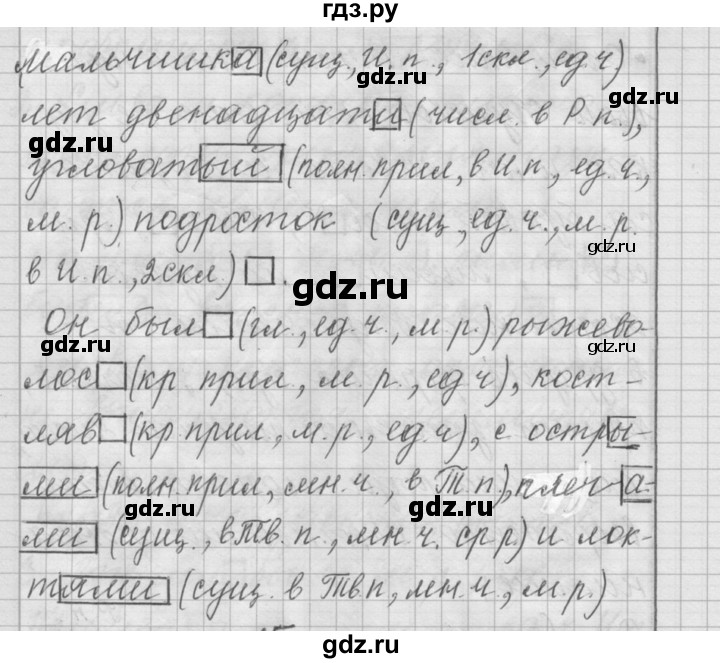 гдз.ру
мальчишка (сущ., И. п., 1скл., ед.ч)
gdz.ru
лет двенадцати (числ. в Р. п.),
gdz.ru
угловатый (полн. прил, в И. п., ед. ч.,
м. р.) подросток (сущ., ед. ч., м. р.
gdz.ru
в И. п., 2скл.)
gdz.ru
Он был (гл., ед. ч., м. р.) рыжево-
gdz.ru
лос (кр. прил, м. р., ед ч), кост-
ляв (кр прил., м. р., ед. ч), с остры-
ми (полн. прил, мн. ч., в Т. п.), плеч-а-
gdz.ru
gdz.ru
ми (сущ., в Тв. п., мн. ч. ср р) и лок-
тями (сущ. в Тв п, мн. ч., м. р.)
gdz.ru
gdz.ru
gdz.ru